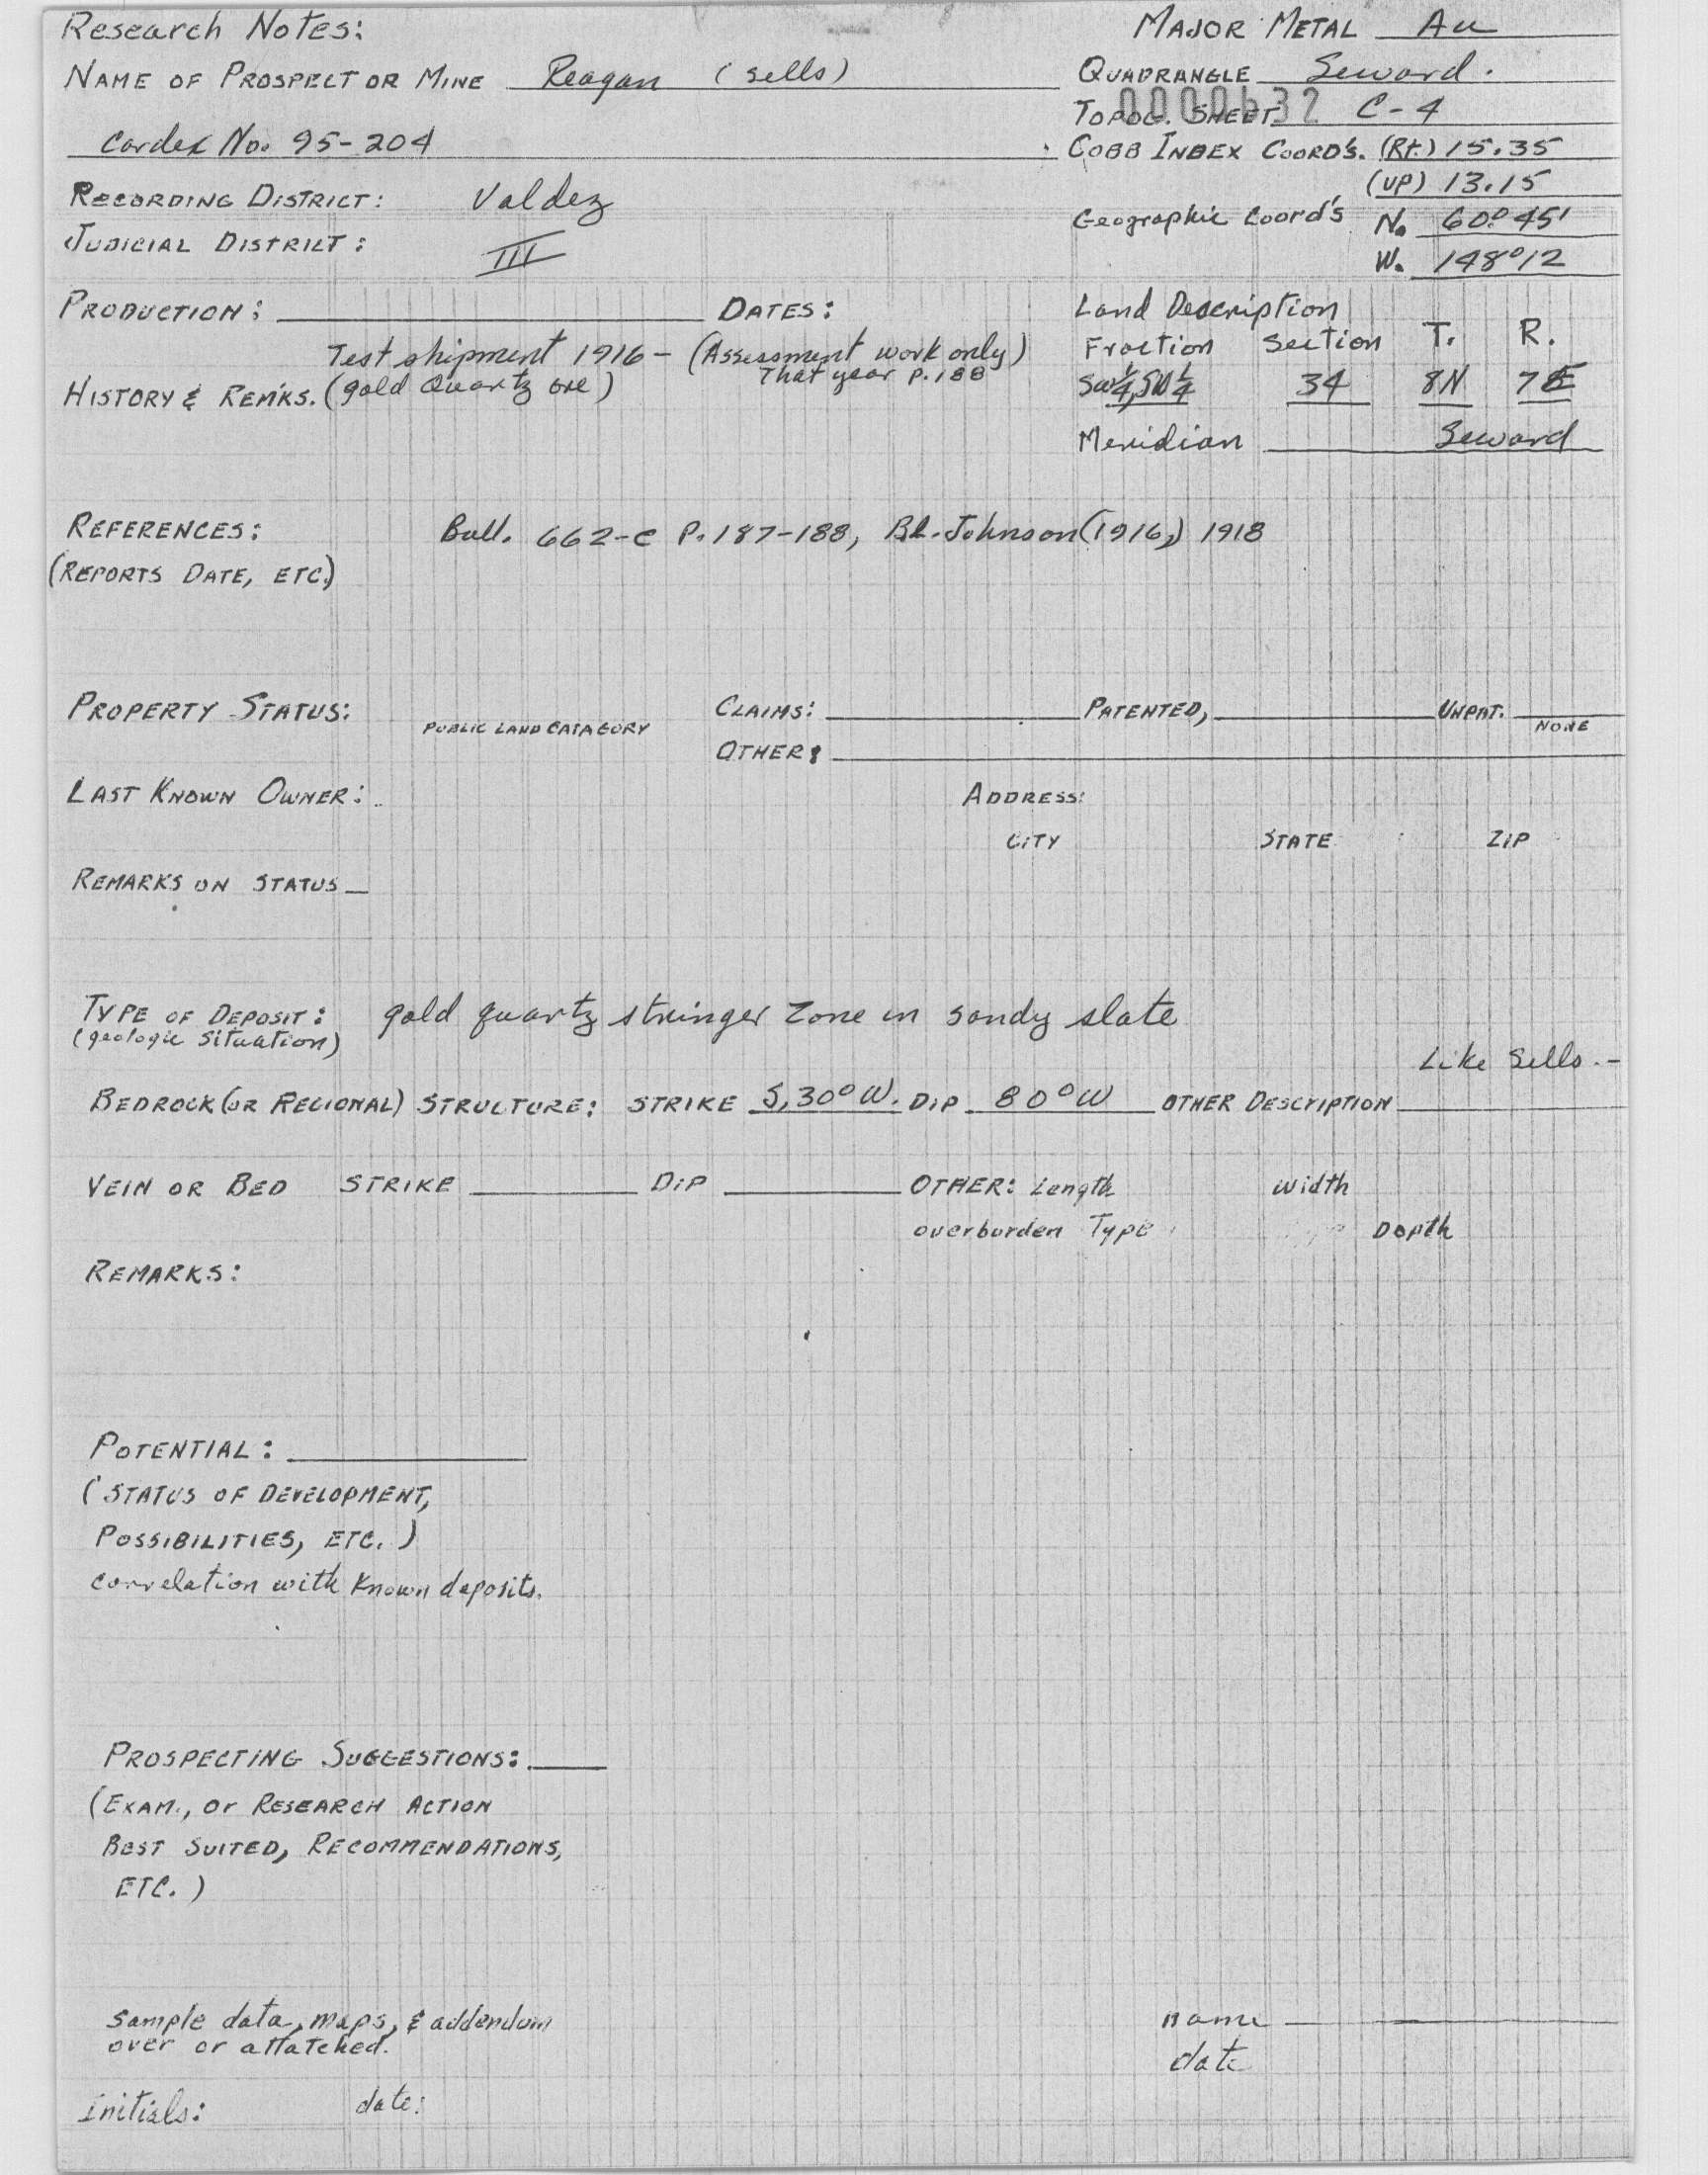 Research Notes:
MAJOR METAL Au
NAME OF PROSPECT OR MINE Reagan (Sells)
QUADRANGLE Seward.
0000632
TOPOG. SHEET C-4
Cardex No. 95-204
COBB INDEX COORD'S. (Rt.) 15.35
(UP) 13.15
RECORDING DISTRICT: Valdez
Geographic Coord's N. 60°45'
JUDICIAL DISTRICT: III
W. 148°12
PRODUCTION: DATES:
Land Description
Test shipment 1916 - (Assessment work only)
That year P.188
Fraction Section T. R.
HISTORY & REMKS. (gold Quartz ore)
SW¼, SW¼ 34 8N 7E
Meridian Seward
REFERENCES: Bull. 662-C P. 187-188, B.L. Johnson (1916,) 1918
(REPORTS DATE, ETC.)
PROPERTY STATUS: PUBLIC LAND CATAGORY CLAIMS: PATENTED, UNPAT. NONE
OTHER:
LAST KNOWN OWNER: ADDRESS:
CITY STATE ZIP
REMARKS ON STATUS
TYPE OF DEPOSIT: gold quartz stringer zone in sandy slate
(geologic situation)
Like Sells.-
BEDROCK (OR REGIONAL) STRUCTURE: STRIKE S,30°W. DIP 80°W OTHER DESCRIPTION
VEIN OR BED STRIKE DIP OTHER: Length Width
overburden Type Depth
REMARKS:
POTENTIAL:
(STATUS OF DEVELOPMENT,
POSSIBILITIES, ETC.)
correlation with known deposits.
PROSPECTING SUGGESTIONS:
(EXAM., Or RESEARCH ACTION
BEST SUITED, RECOMMENDATIONS,
ETC.)
sample data, maps, & addendum
over or attatched.
name
date
Initials: date: